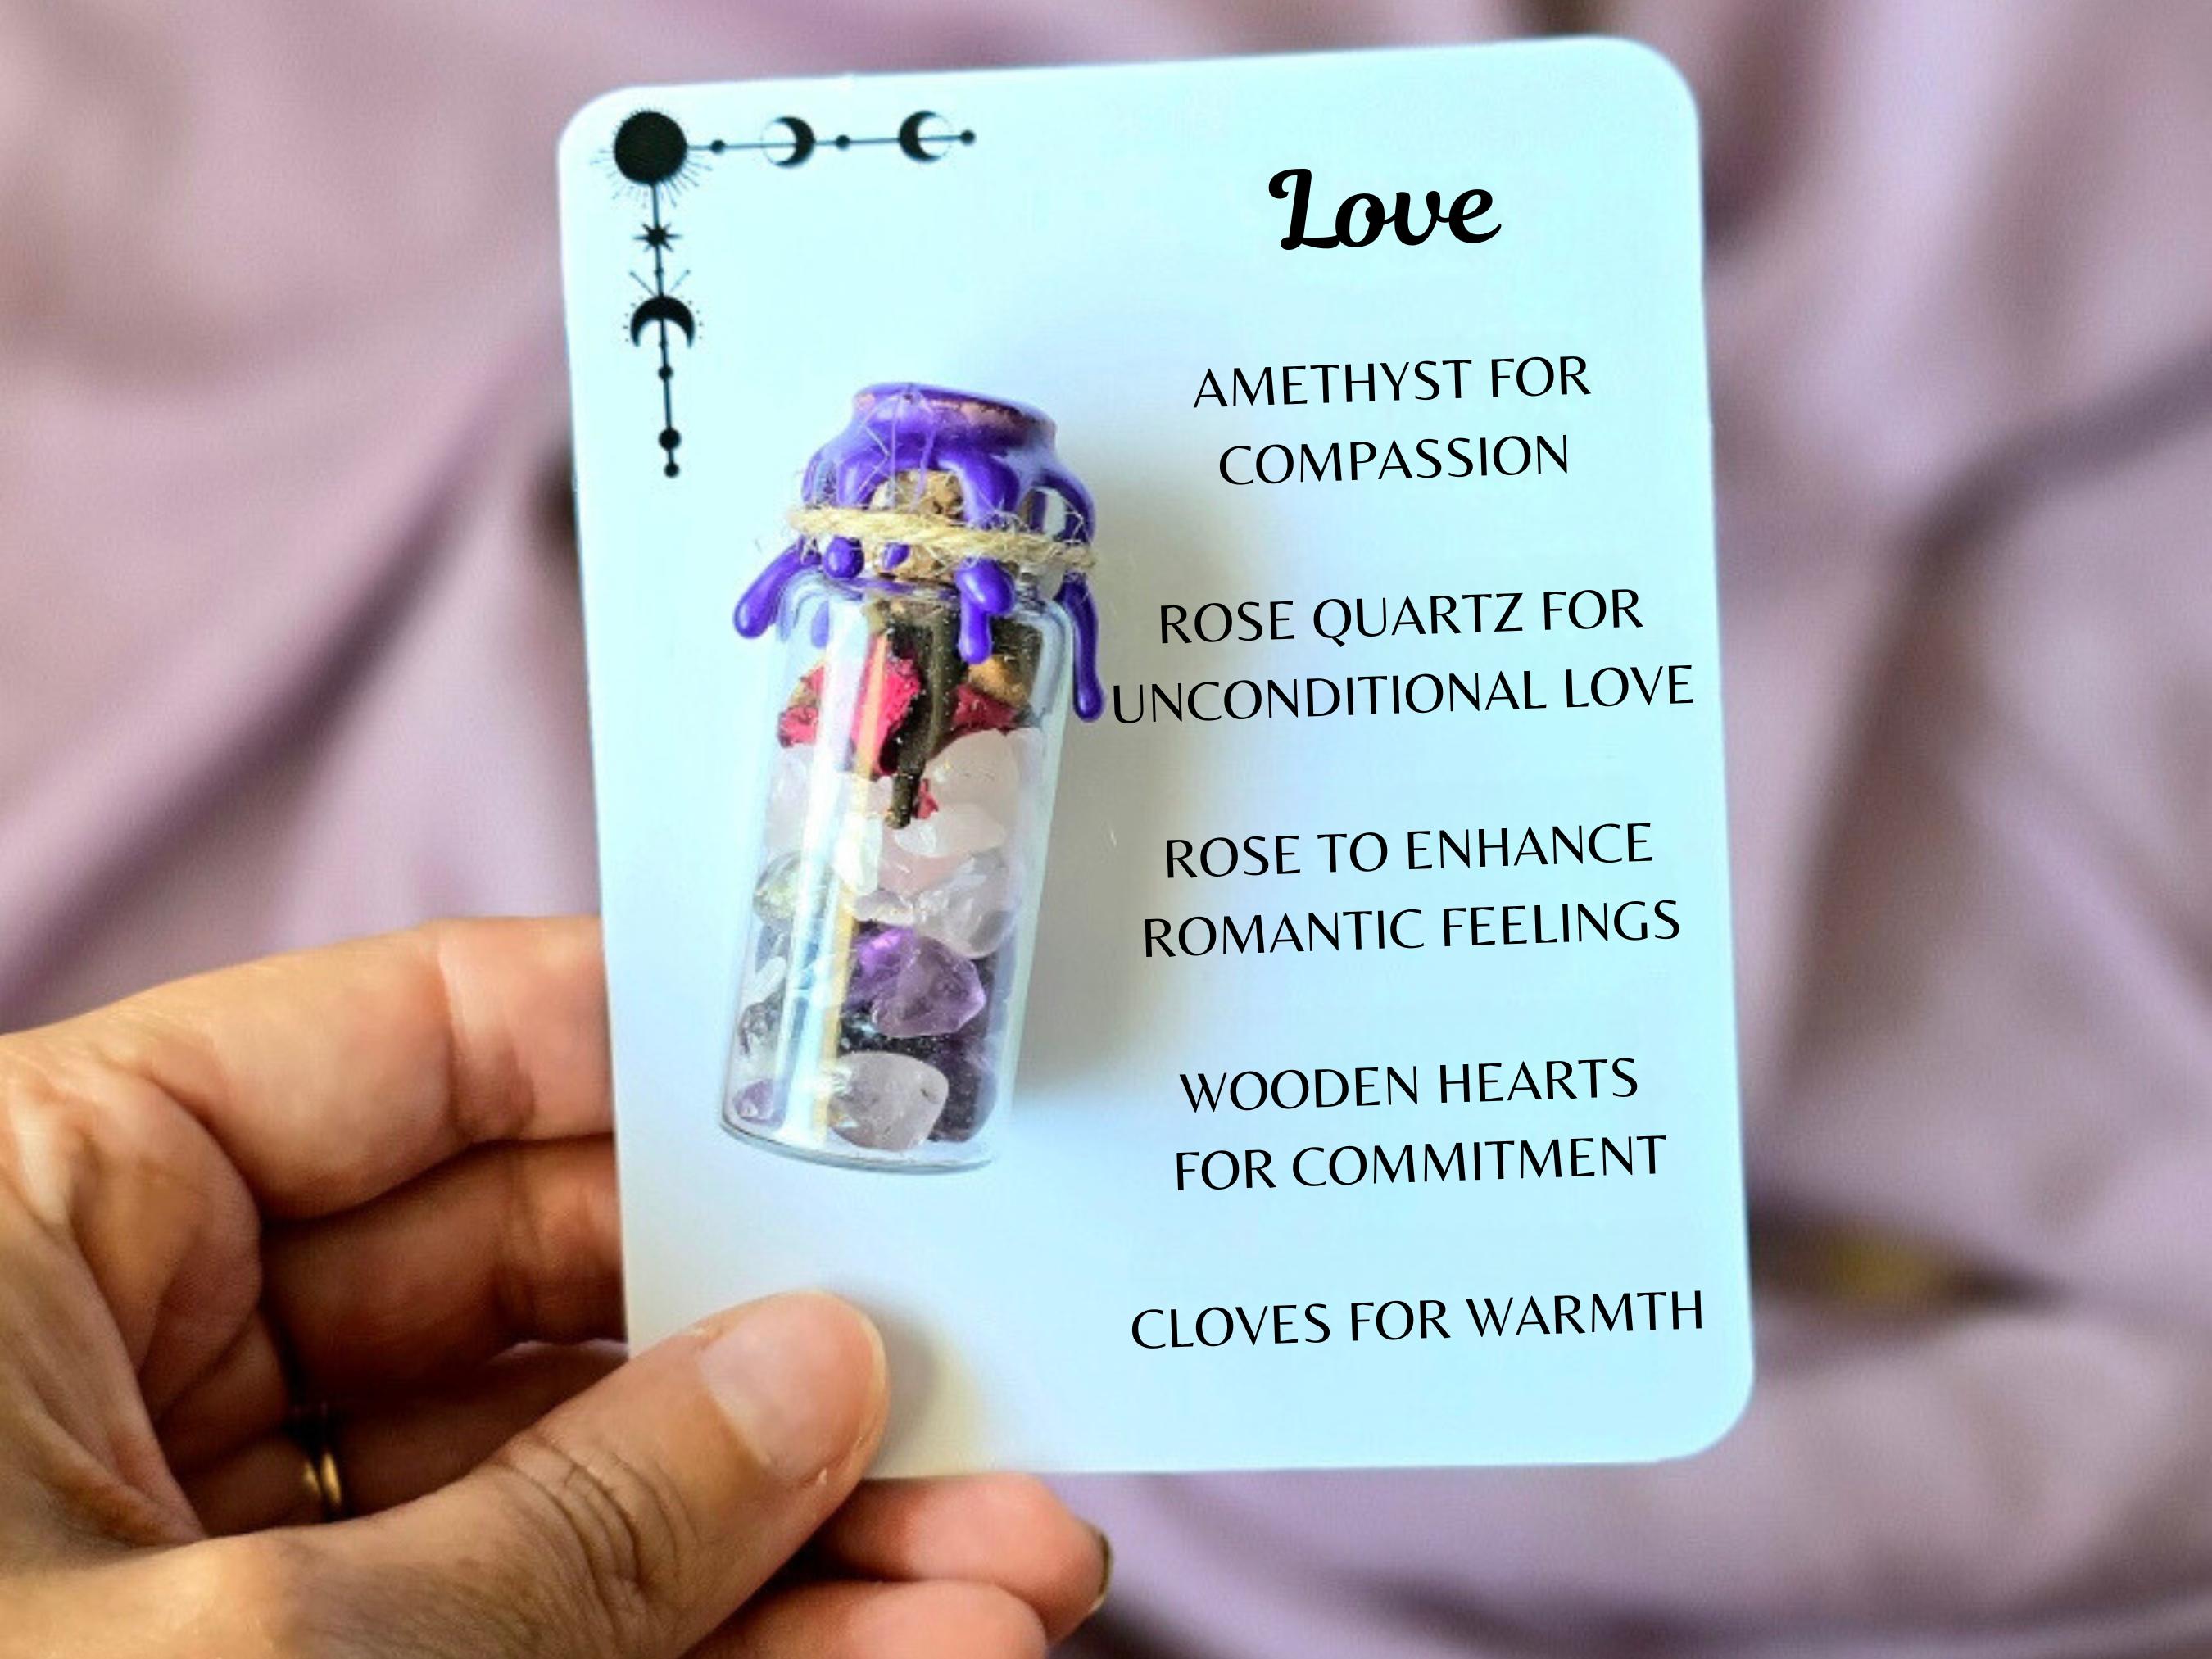 Love
AMETHYST FOR
COMPASSION
ROSE QUARTZ FOR
UNCONDITIONAL LOVE
ROSE TO ENHANCE
ROMANTIC FEELINGS
WOODEN HEARTS
FOR COMMITMENT
CLOVES FOR WARMTH